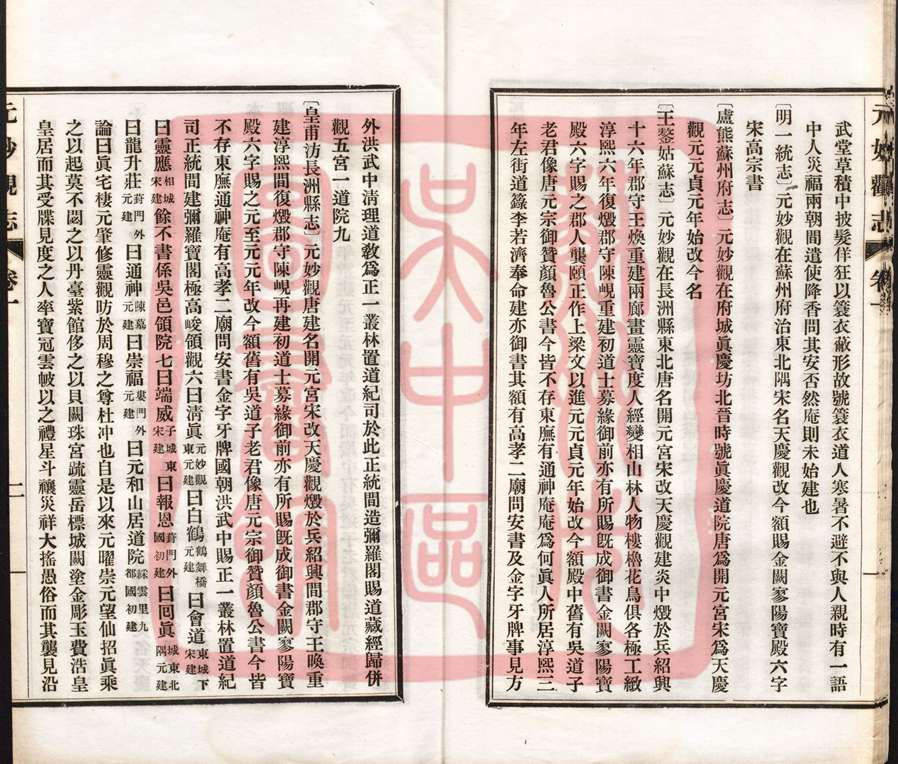 武堂草積中披髮佯狂以簑衣蔽形故號簑衣道人寒暑不避不與人親時有一語
中人災福兩朝間遣使降香問其安否然庵則未始建也
〔明一統志〕元妙觀在蘇州府治東北隅宋名天慶觀改今額賜金闕寥陽寶殿六字
宋高宗書
〔盧熊蘇州府志〕元妙觀在府城眞慶坊北晉時號眞慶道院唐爲開元宮宋爲天慶
觀元元貞元年始改今名
〔王鏊姑蘇志〕元妙觀在長洲縣東北唐名開元宮宋改天慶觀建炎中燬於兵紹興
十六年郡守王煥重建兩廊畫靈寶度人經變相山林人物樓櫓花鳥俱各極工緻
淳熙六年復燬郡守陳峴重建初道士募緣御前亦有所賜旣成御書金闕寥陽寶
殿六字賜之郡人龔頤正作上梁文以進元元貞元年始改今額殿中舊有吳道子
老君像唐元宗御贊顏魯公書今皆不存東廡有通神庵庵爲何眞人所居淳熙三
年左街道籙李若濟奉命建亦御書其額有高孝二廟問安書及金字牙牌事見方
元妙觀志 卷一
外洪武中清理道教爲正一叢林置道紀司於此正統間造彌羅閣賜道藏經歸併
觀五宮一道院九
〔皇甫汸長洲縣志〕元妙觀唐建名開元宮宋改天慶觀燬於兵紹興間郡守王喚重
建淳熙間復燬郡守陳峴再建初道士募緣御前亦有所賜旣成御書金闕寥陽寶
殿六字賜之元至元元年改今額舊有吳道子老君像唐元宗御贊顏魯公書今皆
不存東廡通神庵有高孝二廟問安書金字牙牌國朝洪武中賜正一叢林置道紀
司正統間建彌羅寶閣極高峻領觀六曰清眞元妙觀東元建曰白鶴鶴舞橋元建曰會道東城下宋建
曰靈應相城宋建餘不書係吳邑領院七曰端威子城東宋建曰報恩葑門外國初建曰囘眞城東北隅元建
曰龍升莊葑門外元建曰通神陳墓元建曰崇福婁門外元建曰元和山居道院綵雲里九都國初建
論曰眞宅棲元肇修靈觀昉於周穆之尊杜沖也自是以來元曜崇元望仙招眞乘
之以起莫不閎之以丹臺紫館侈之以貝闕珠宮疏靈岳標城闕塗金彫玉費浩皇
皇居而其受牒見度之人率寶冠雲帔以之禮星斗禳災祥大搖愚俗而其襲見沿
元妙觀志 卷一 二
蘇州市
吳中區
圖書館